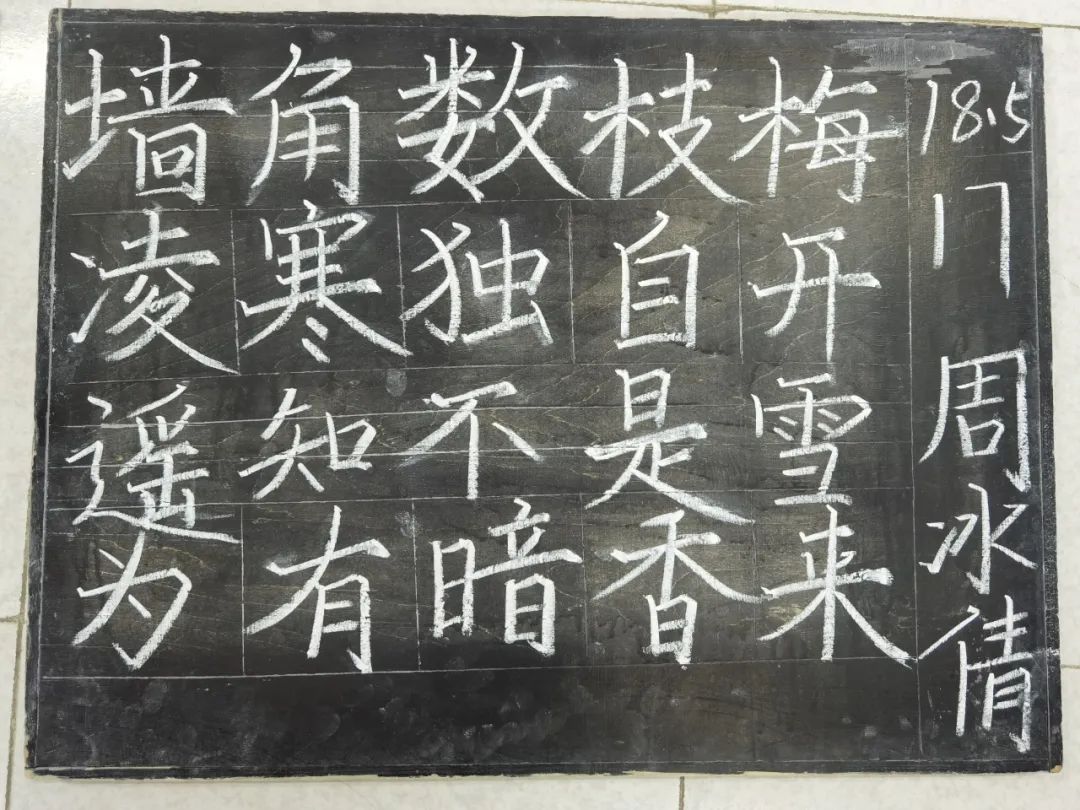 墙角数枝梅
凌寒独自开
遥知不是雪
为有暗香来
18.5
17
周冰倩